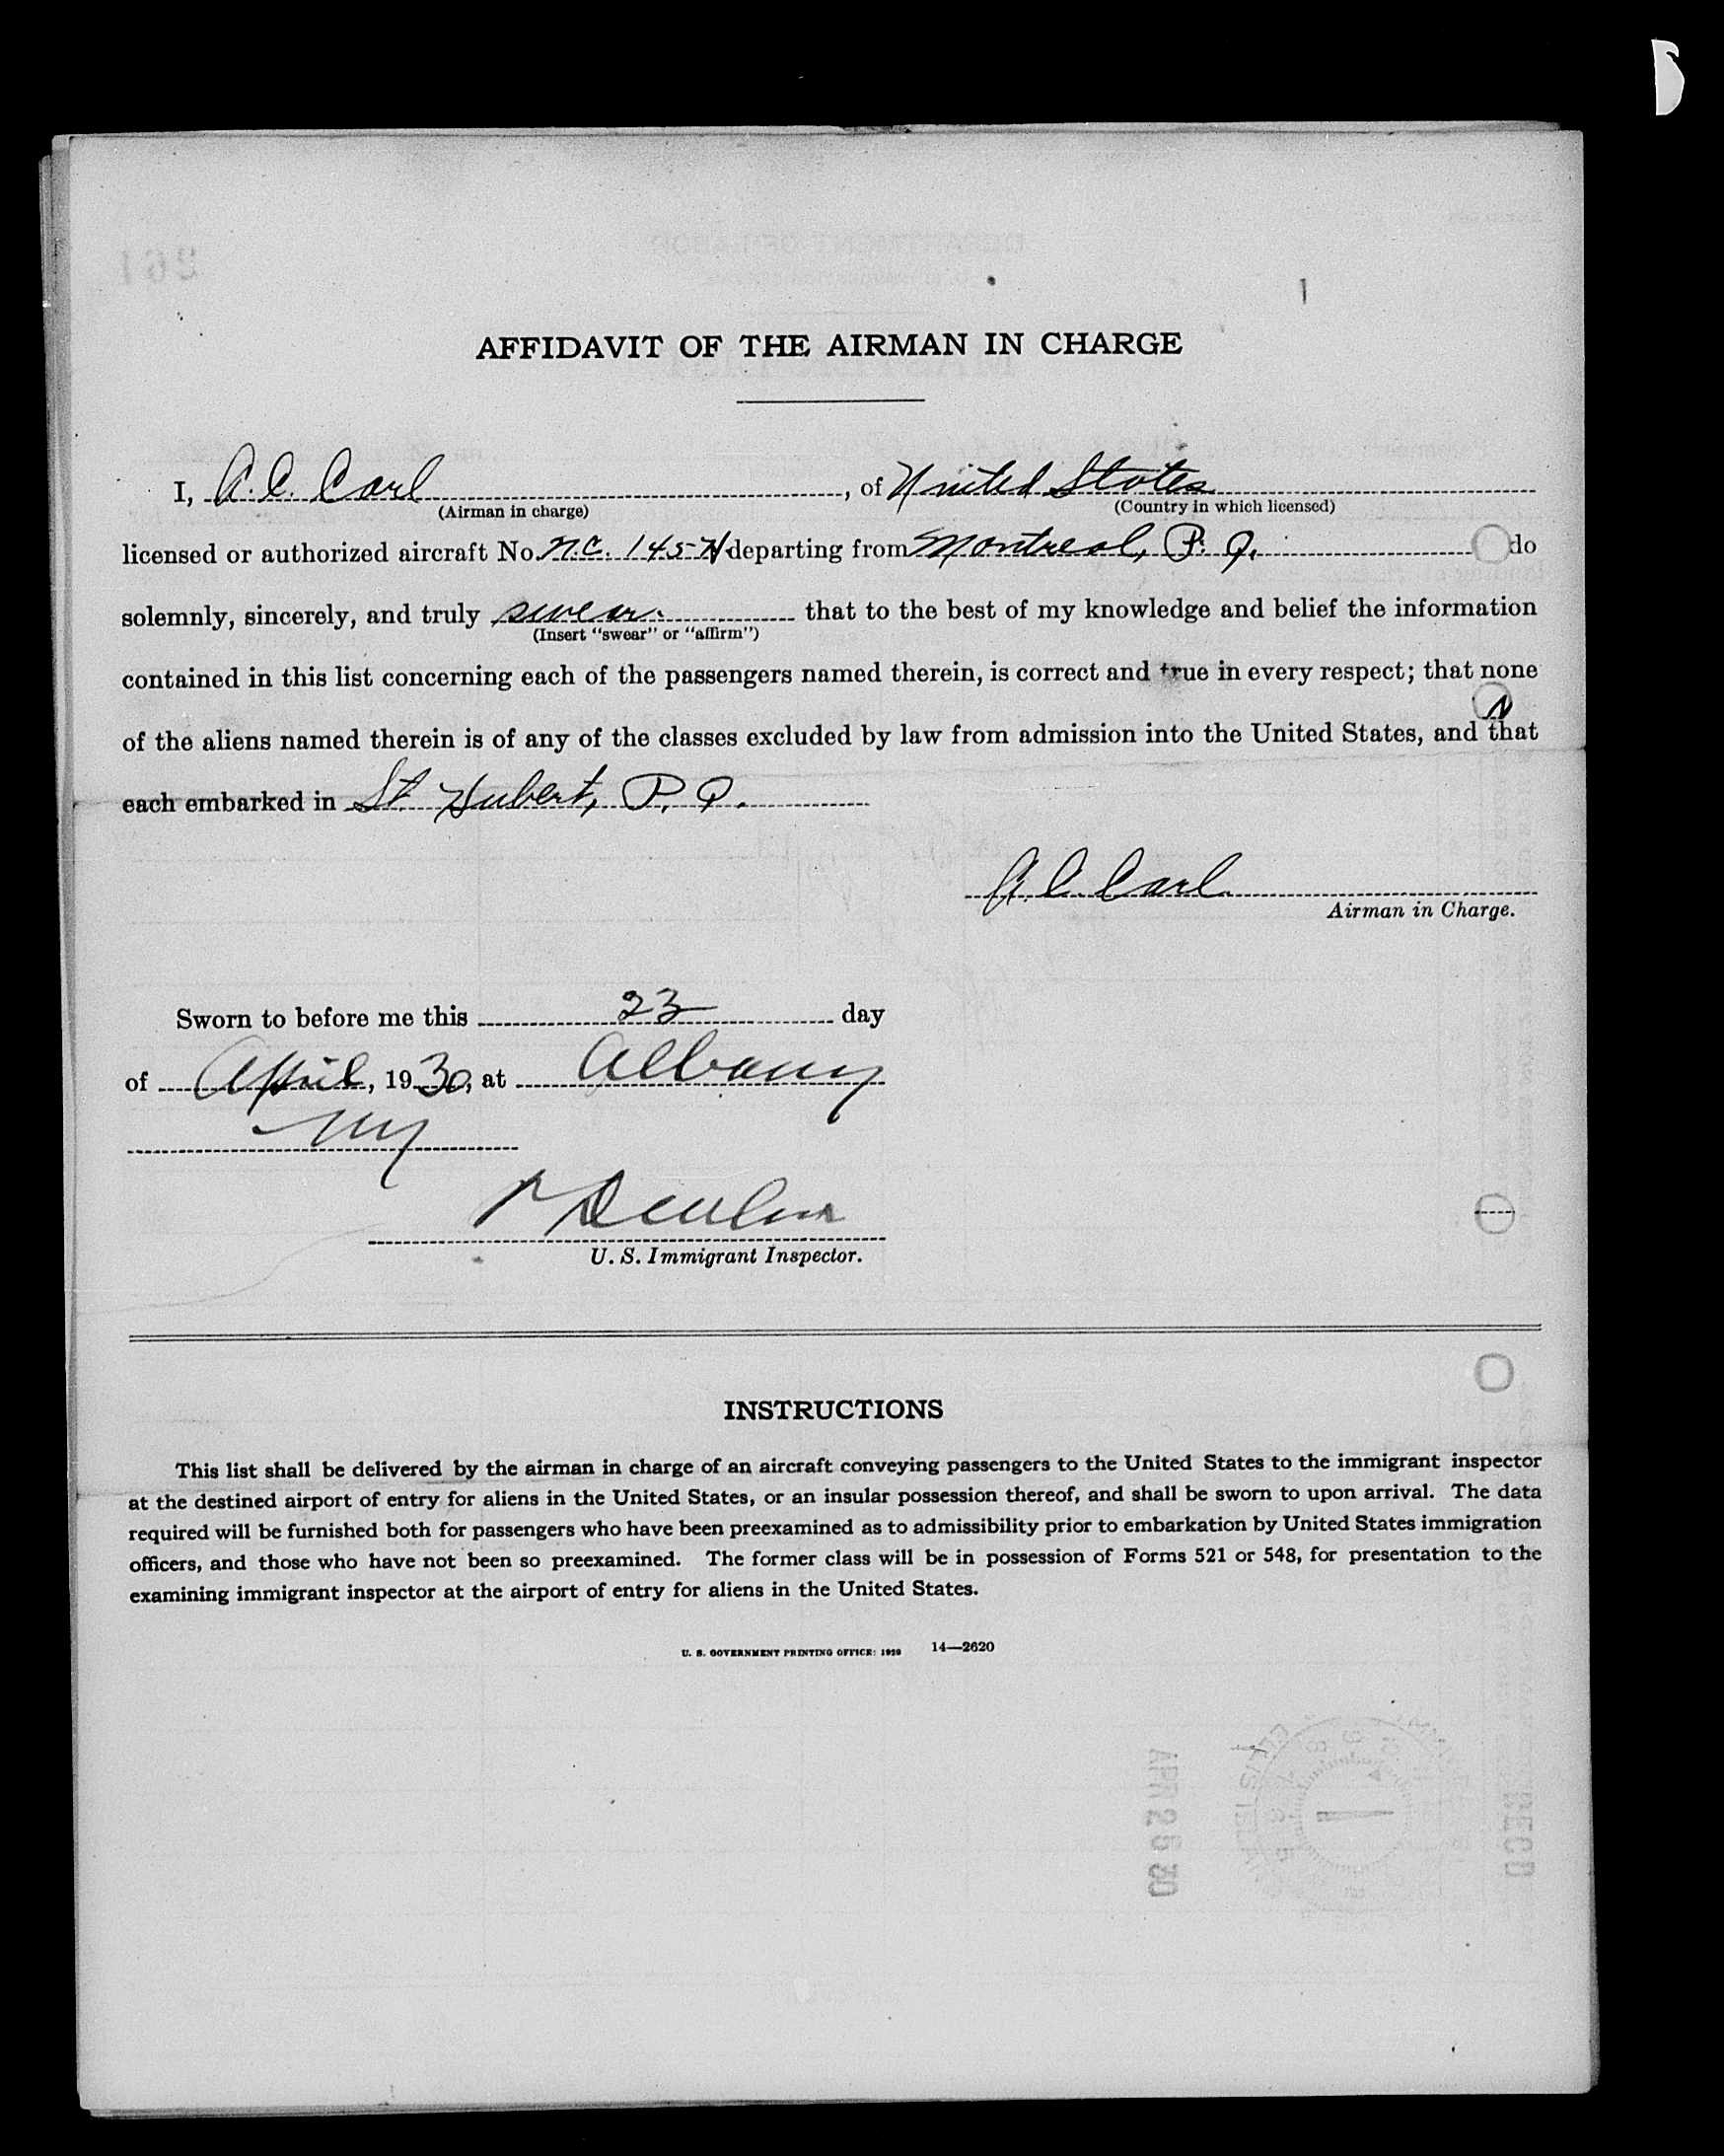 AFFIDAVIT OF THE AIRMAN IN CHARGE
I, A. C. Carl, of United States
(Airman in charge) (Country in which licensed)
licensed or authorized aircraft No. N.C. 145 departing from Montreal, P. Q. do
solemnly, sincerely, and truly swear that to the best of my knowledge and belief the information
(Insert "swear" or "affirm")
contained in this list concerning each of the passengers named therein, is correct and true in every respect; that none
of the aliens named therein is of any of the classes excluded by law from admission into the United States, and that
each embarked in St. Hubert, P. Q.
A. C. Carl
Airman in Charge.
Sworn to before me this 23 day
of April, 1930, at Albany
NY
U. S. Immigrant Inspector.
INSTRUCTIONS
This list shall be delivered by the airman in charge of an aircraft conveying passengers to the United States to the immigrant inspector
at the destined airport of entry for aliens in the United States, or an insular possession thereof, and shall be sworn to upon arrival. The data
required will be furnished both for passengers who have been preexamined as to admissibility prior to embarkation by United States immigration
officers, and those who have not been so preexamined. The former class will be in possession of Forms 521 or 548, for presentation to the
examining immigrant inspector at the airport of entry for aliens in the United States.
U. S. GOVERNMENT PRINTING OFFICE: 1929 14—2620